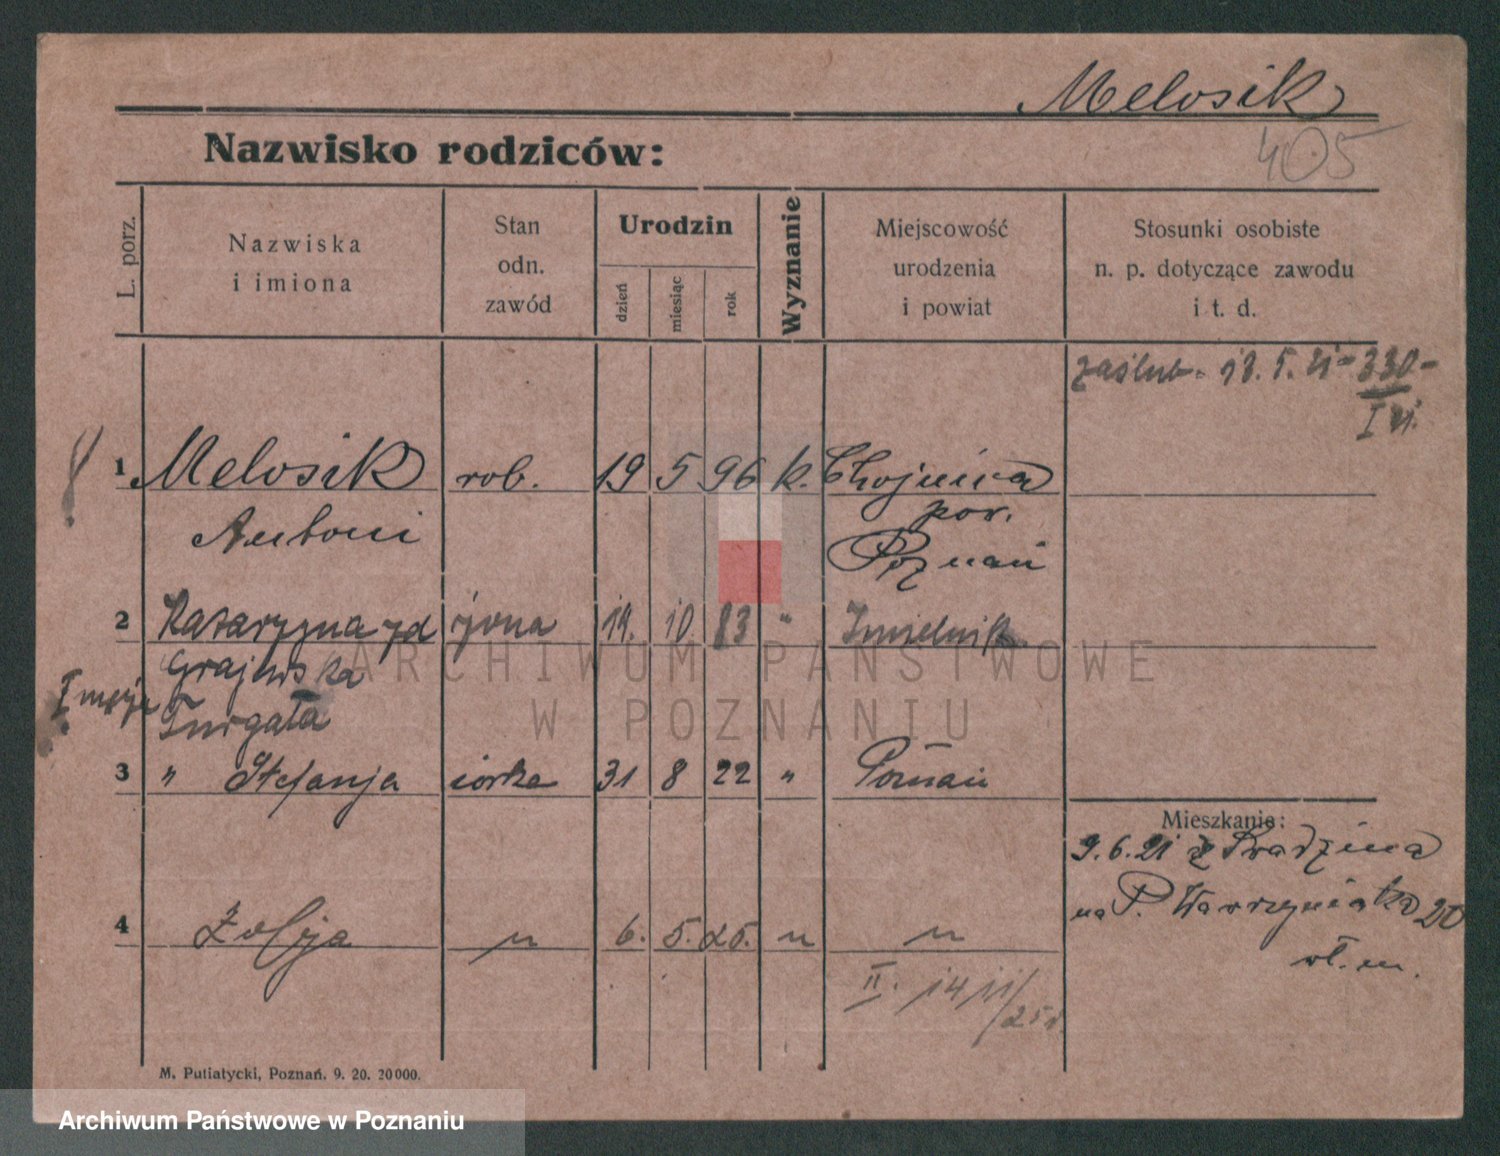 Melosik
405
Nazwisko rodziców:
L. porz.
Nazwiska
i imiona
Stan
odn.
zawód
Urodzin
dzień
miesiąc
rok
Wyznanie
Miejscowość
urodzenia
i powiat
Stosunki osobiste
n. p. dotyczące zawodu
i t. d.
zaślub. 18. 5. 21 - 330 -
1 Melosik rob. 19 5 96 k. Chojnica
Antoni
pow.
Poznań
2 Katarzyna zd żona 19. 10 83 " Imielnik
Grajewska
Turgała
3 " Stefanja córka 31 8 22 " Poznań
Mieszkanie:
9.6.21 z Radzina
na P. Wawrzyniaka 20
4 Zofja " 6. 5. 25. " "
II. 14 11/
25r.
M. Putiatycki, Poznań. 9. 20. 20000.
ARCHIWUM PAŃSTWOWE
W POZNANIU
Archiwum Państwowe w Poznaniu